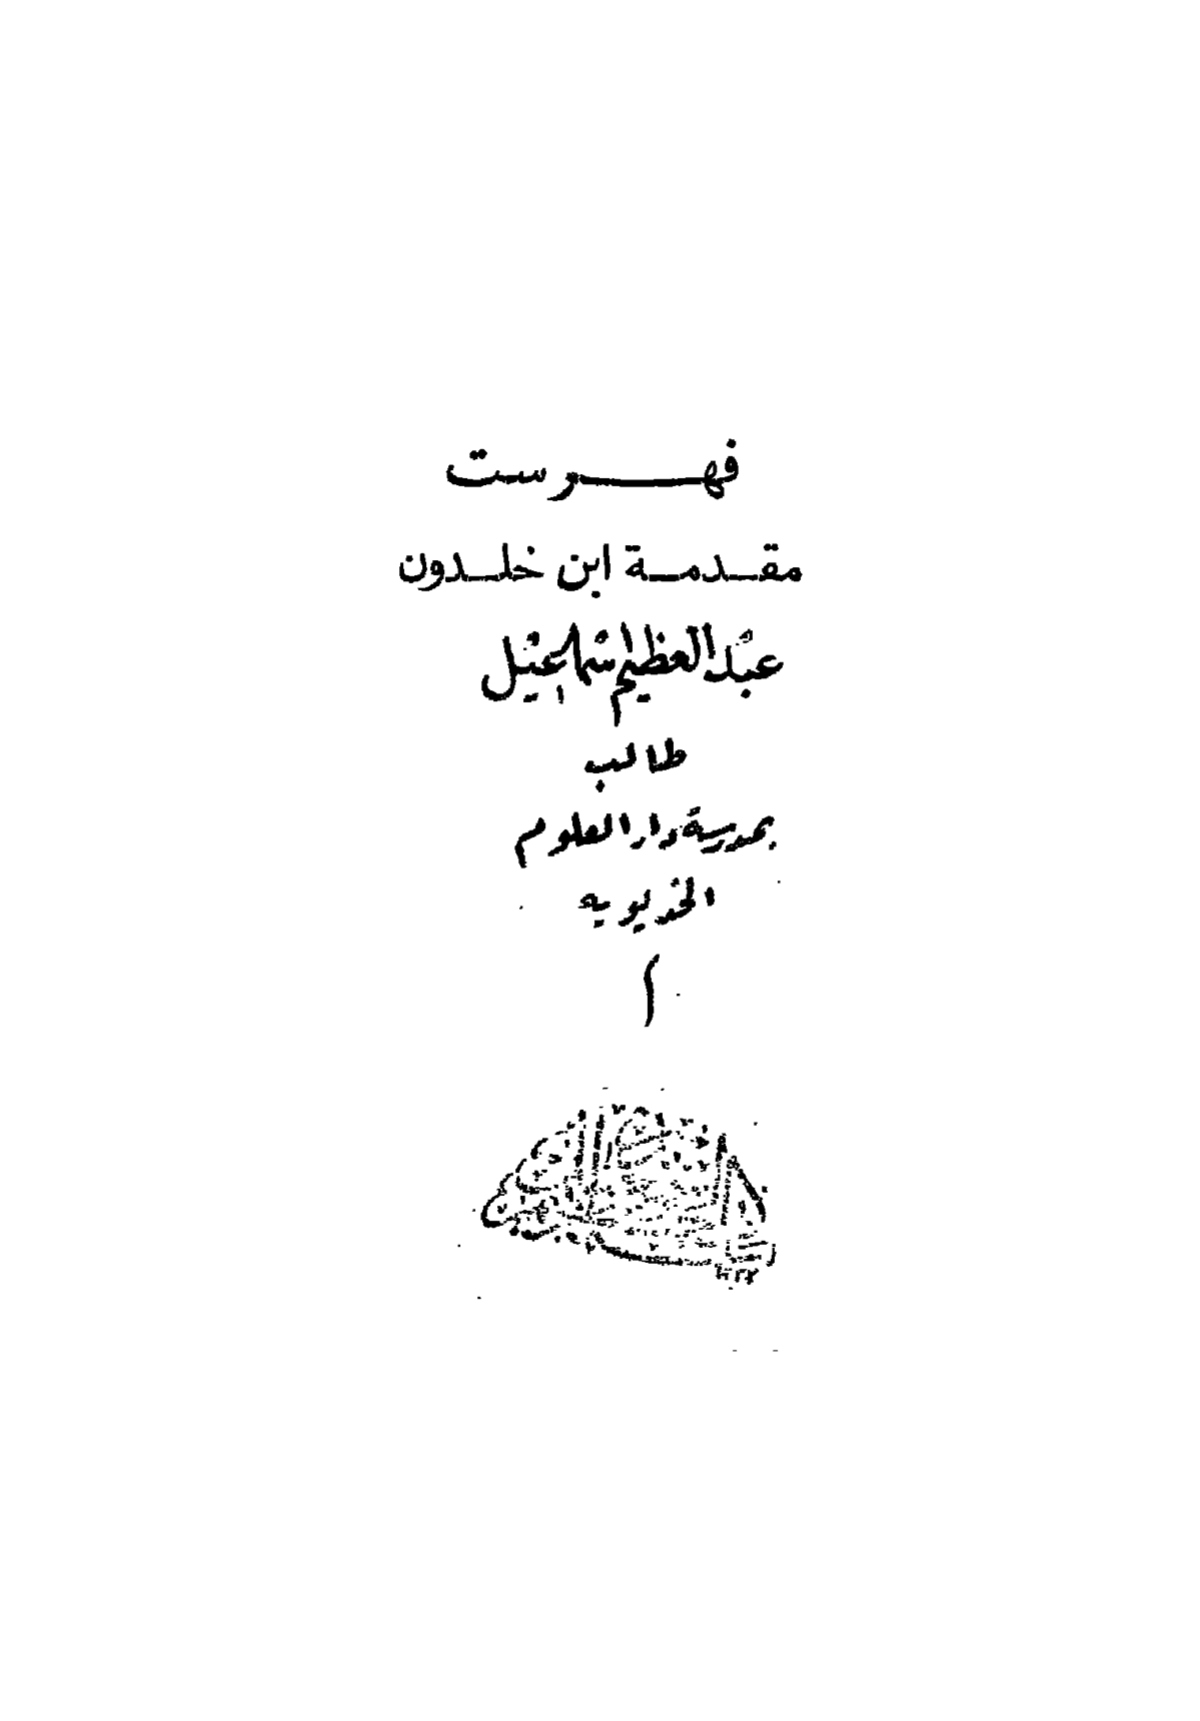 فهرست
مقدمة ابن خلدون
عبد العظيم اسماعيل
طالب
بمدرسة دار العلوم
الخديويه